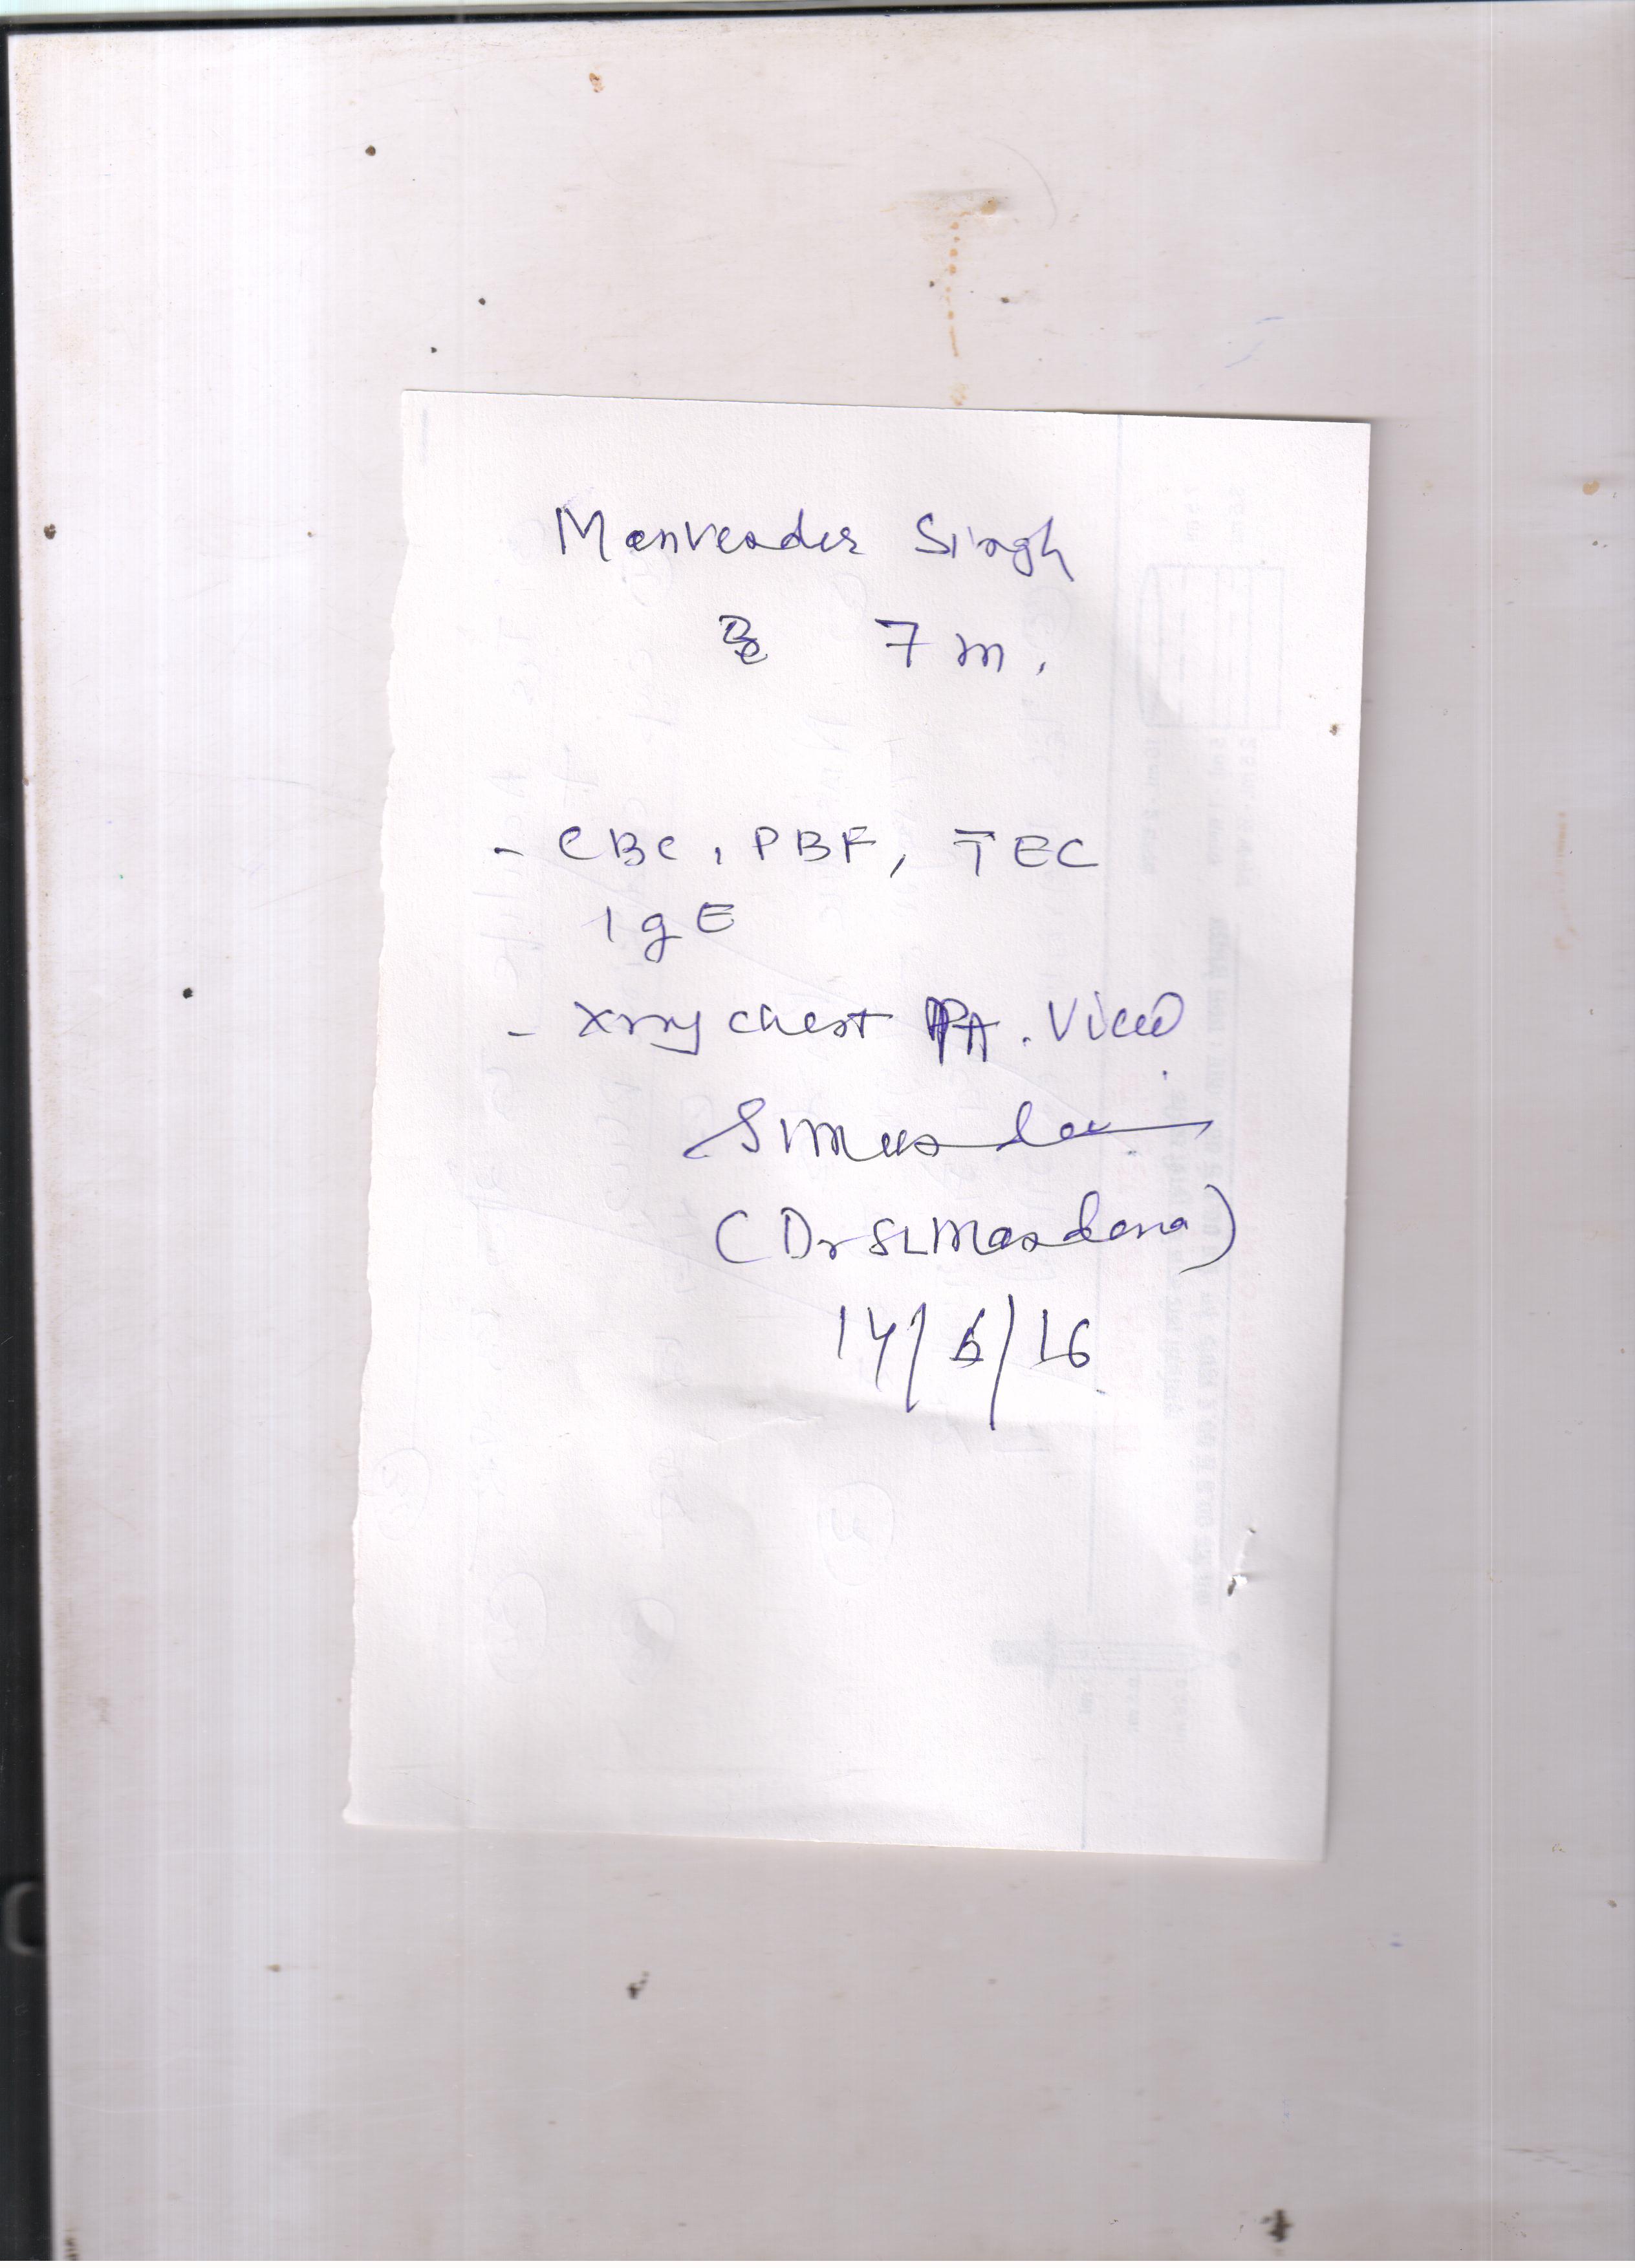 Manvender Singh
7 m.
- CBC, PBF, TEC
IgE
- Xray chest PA. View
(Dr SL Mandana)
14/6/16